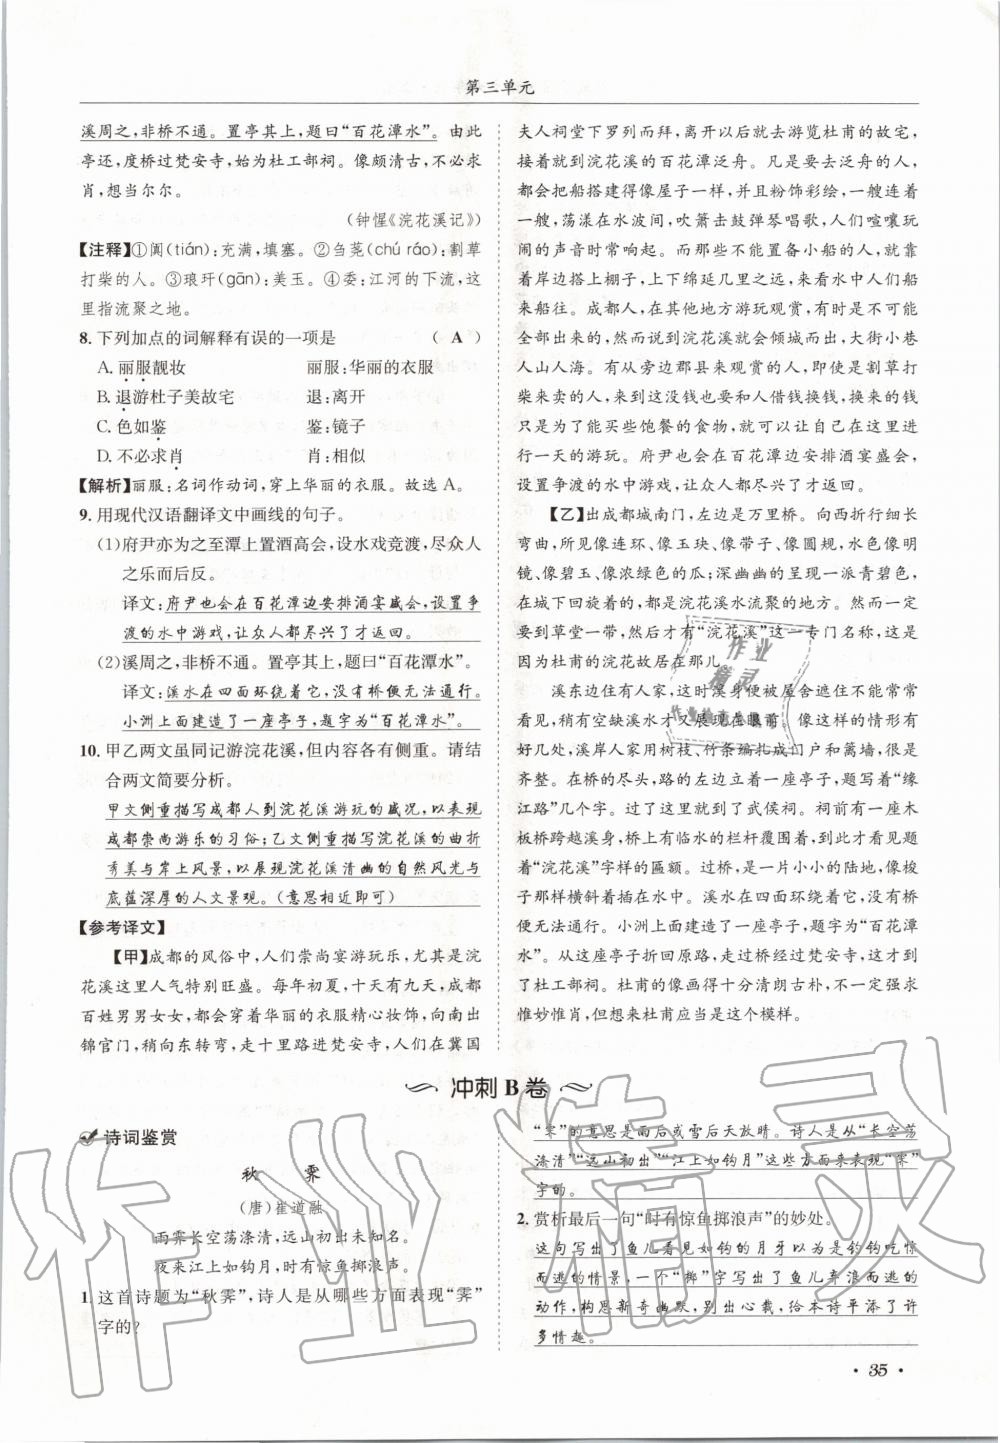 第三单元
溪周之,非桥不通。置亭其上,题曰“百花潭水”。由此
亭还,度桥过梵安寺,始为杜工部祠。像颇清古,不必求
肖,想当尔尔。
(钟惺《浣花溪记》)
【注释】①阗(tián):充满,填塞。②刍荛(chú ráo):割草
打柴的人。③琅玕(gān):美玉。④委:江河的下流,这
里指流聚之地。
8. 下列加点的词解释有误的一项是 ( A )
A. 丽服靓妆 丽服:华丽的衣服
B. 退游杜子美故宅 退:离开
C. 色如鉴 鉴:镜子
D. 不必求肖 肖:相似
【解析】丽服:名词作动词,穿上华丽的衣服。故选 A。
9. 用现代汉语翻译文中画线的句子。
(1)府尹亦为之至潭上置酒高会,设水戏竞渡,尽众人
之乐而后反。
译文:府尹也会在百花潭边安排酒宴盛会,设置争
渡的水中游戏,让众人都尽兴了才返回。
(2)溪周之,非桥不通。置亭其上,题曰“百花潭水”。
译文:溪水在四面环绕着它,没有桥便无法通行。
小洲上面建造了一座亭子,题字为“百花潭水”。
10. 甲乙两文虽同记游浣花溪,但内容各有侧重。请结
合两文简要分析。
甲文侧重描写成都人到浣花溪游玩的盛况,以表现
成都崇尚游乐的习俗;乙文侧重描写浣花溪的曲折
秀美与岸上风景,以展现浣花溪清幽的自然风光与
底蕴深厚的人文景观。(意思相近即可)
【参考译文】
【甲】成都的风俗中,人们崇尚宴游玩乐,尤其是浣
花溪这里人气特别旺盛。每年初夏,十天有九天,成都
百姓男男女女,都会穿着华丽的衣服精心妆饰,向南出
锦官门,稍向东转弯,走十里路进梵安寺,人们在冀国
夫人祠堂下罗列而拜,离开以后就去游览杜甫的故宅,
接着就到浣花溪的百花潭泛舟。凡是要去泛舟的人,
都会把船搭建得像屋子一样,并且粉饰彩绘,一艘连着
一艘,荡漾在水波间,吹箫击鼓弹琴唱歌,人们喧嚷玩
闹的声音时常响起。而那些不能置备小船的人们,就
靠着岸边搭上棚子,上下绵延几里之远,来看水中人们船
来船往。成都人,在其他地方游玩观赏,有时不可能
全部出来的,然而说到浣花溪就会倾城而出,大街小巷
人山人海。有从旁边郡县来观赏的人,即使是割草打
柴来卖的人,来到这没钱也要和人借钱换钱,换来的钱
只是为了能买些饱餐的食物,就可以让自己在此开心进
行一天的游玩。府尹也会在百花潭边安排酒宴盛会,
设置争渡的水中游戏,让众人都尽兴了才返回。
【乙】出成都城南门,左边是万里桥。向西折行细长
弯曲,所见像连环、像玉玦、像带子、像圆规,水色像明
镜、像碧玉、像浓绿色的瓜;深幽幽的呈现一派青碧色,
在城下回旋着的,都是浣花溪水流聚的地方。然而一定
要到草堂一带,然后才有“浣花溪”这一专门名称,这是
因为杜甫的浣花故居在那儿。
溪东边住有人家,这时溪身便被屋舍遮住不能常常
看见,稍有空缺溪水才又展现在眼前。像这样的情形有
好几处,溪岸人家用树枝、竹条编扎成门户和篱墙,很是
齐整。在桥的尽头,路的左边建着一座亭子,题写着“缘
江路”几个字。过了这里就到了武侯祠。祠前有一座木
板桥跨越溪身,桥上有临水的栏杆覆围着,到此才看见题
着“浣花溪”字样的匾额。过桥,是一片小小的陆地,像梭
子那样横斜着插在水中。溪水在四面环绕着它,没有桥
便无法通行。小洲上面建造了一座亭子,题字为“百花潭
水”。从这座亭子折回原路,走过桥经过梵安寺,这才到
了杜工部祠。杜甫的像画得十分清朗古朴,不一定强求
惟妙惟肖,但想来杜甫应当是这个模样。
冲刺 B 卷
诗词鉴赏
秋 霁
(唐)崔道融
雨霁长空荡涤清,远山初出未知名。
夜来江上如钩月,时有惊鱼掷浪声。
1. 这首诗题为“秋霁”,诗人是从哪些方面表现“霁”
字的?
“霁”的意思是雨后或雪后天放晴。诗人是从“长空荡
涤清”“远山初出”“江上如钩月”这些方面来表现“霁”
字的。
2. 赏析最后一句“时有惊鱼掷浪声”的妙处。
这句写出了鱼儿看见如钩的月牙以为是钓钩吃惊
而逃的情景,一个“掷”字写出了鱼儿奔浪而逃的
动作,构思新奇幽默,别出心裁,给本诗平添了许
多情趣。
· 35 ·
作业
精灵
作业精灵